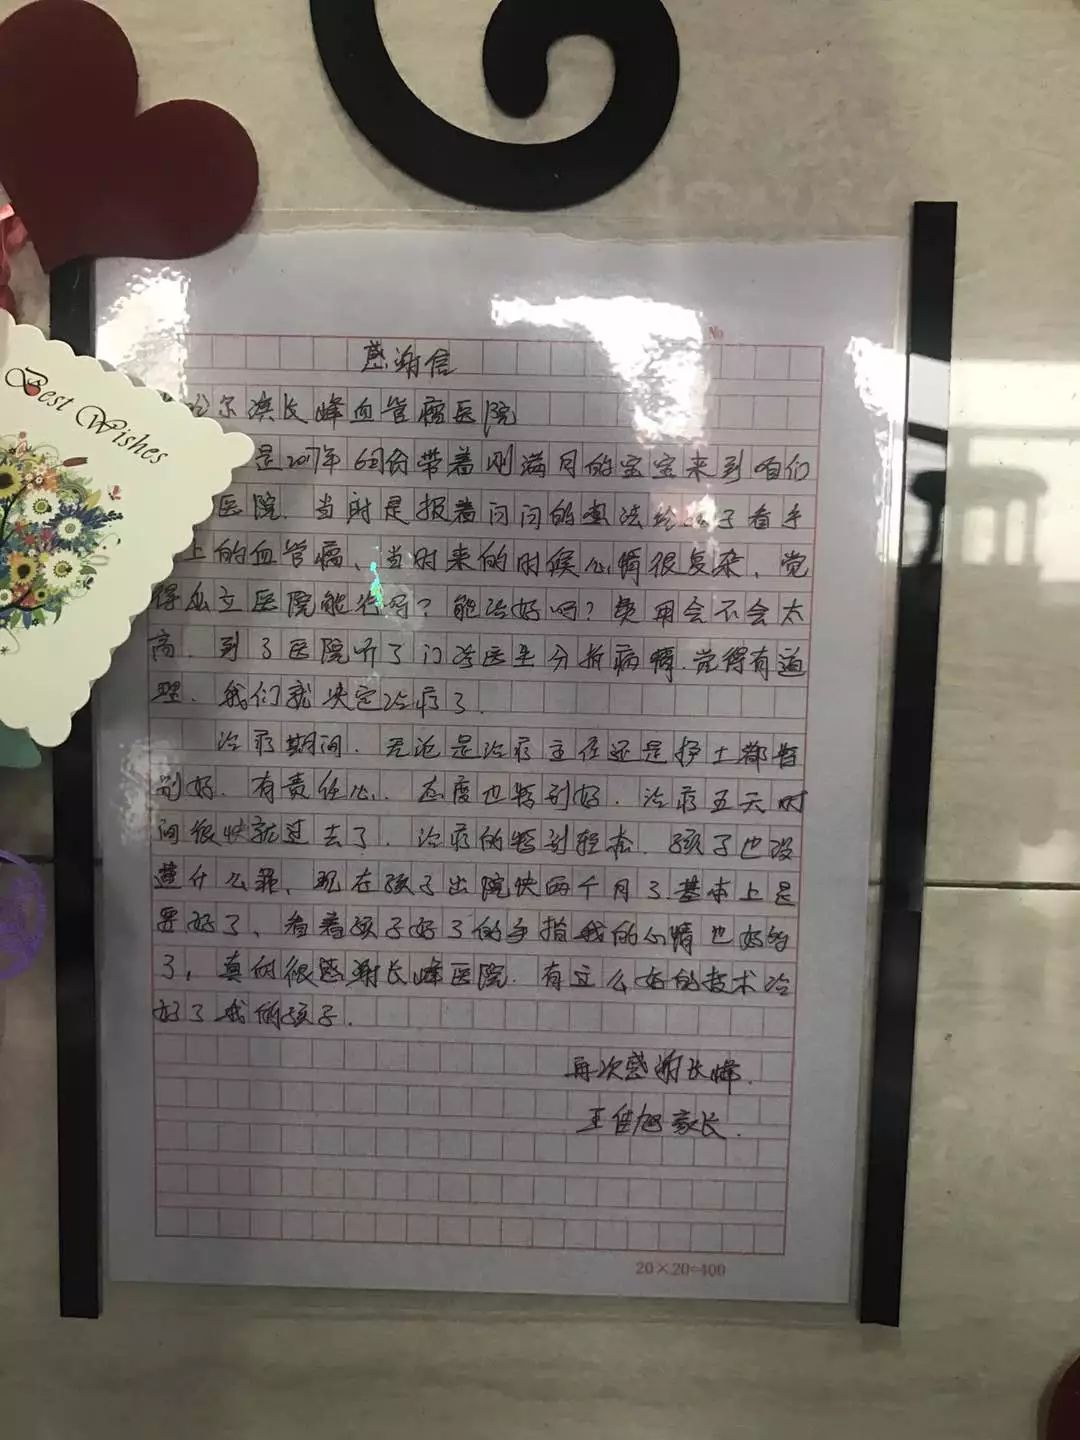 Best Wishes
No
感谢信
哈尔滨长峰血管瘤医院
是2017年6月份带着刚满月的宝宝来到咱们
医院.当时是报着问问的想法给孩子看手
上的血管瘤、当时来的时候心情很复杂、觉
得私立医院能行吗?能治好吗?费用会不会太
高.到了医院听了门诊医生分析病情.觉得有道
理.我们就决定治疗了.
治疗期间.无论是治疗主任还是护士都特
别好.有责任心.态度也特别好.治疗五天时
间很快就过去了.治疗的特别轻松.孩子也没
遭什么罪、现在孩子出院快两个月了.基本上是
要好了、看着孩子好了的手指我的心情也好的
了,真的很感谢长峰医院.有这么好的技术治
好了我的孩子.
再次感谢长峰.
王佳旭家长.
20×20=400